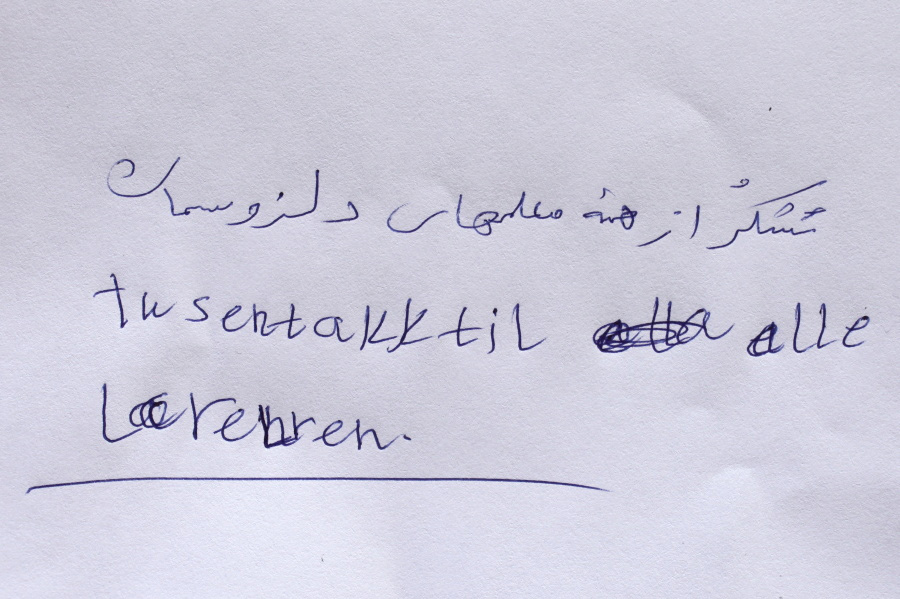 تشکر از همه معلمهای دلسوز
tusen takk til alle
Lærerren.